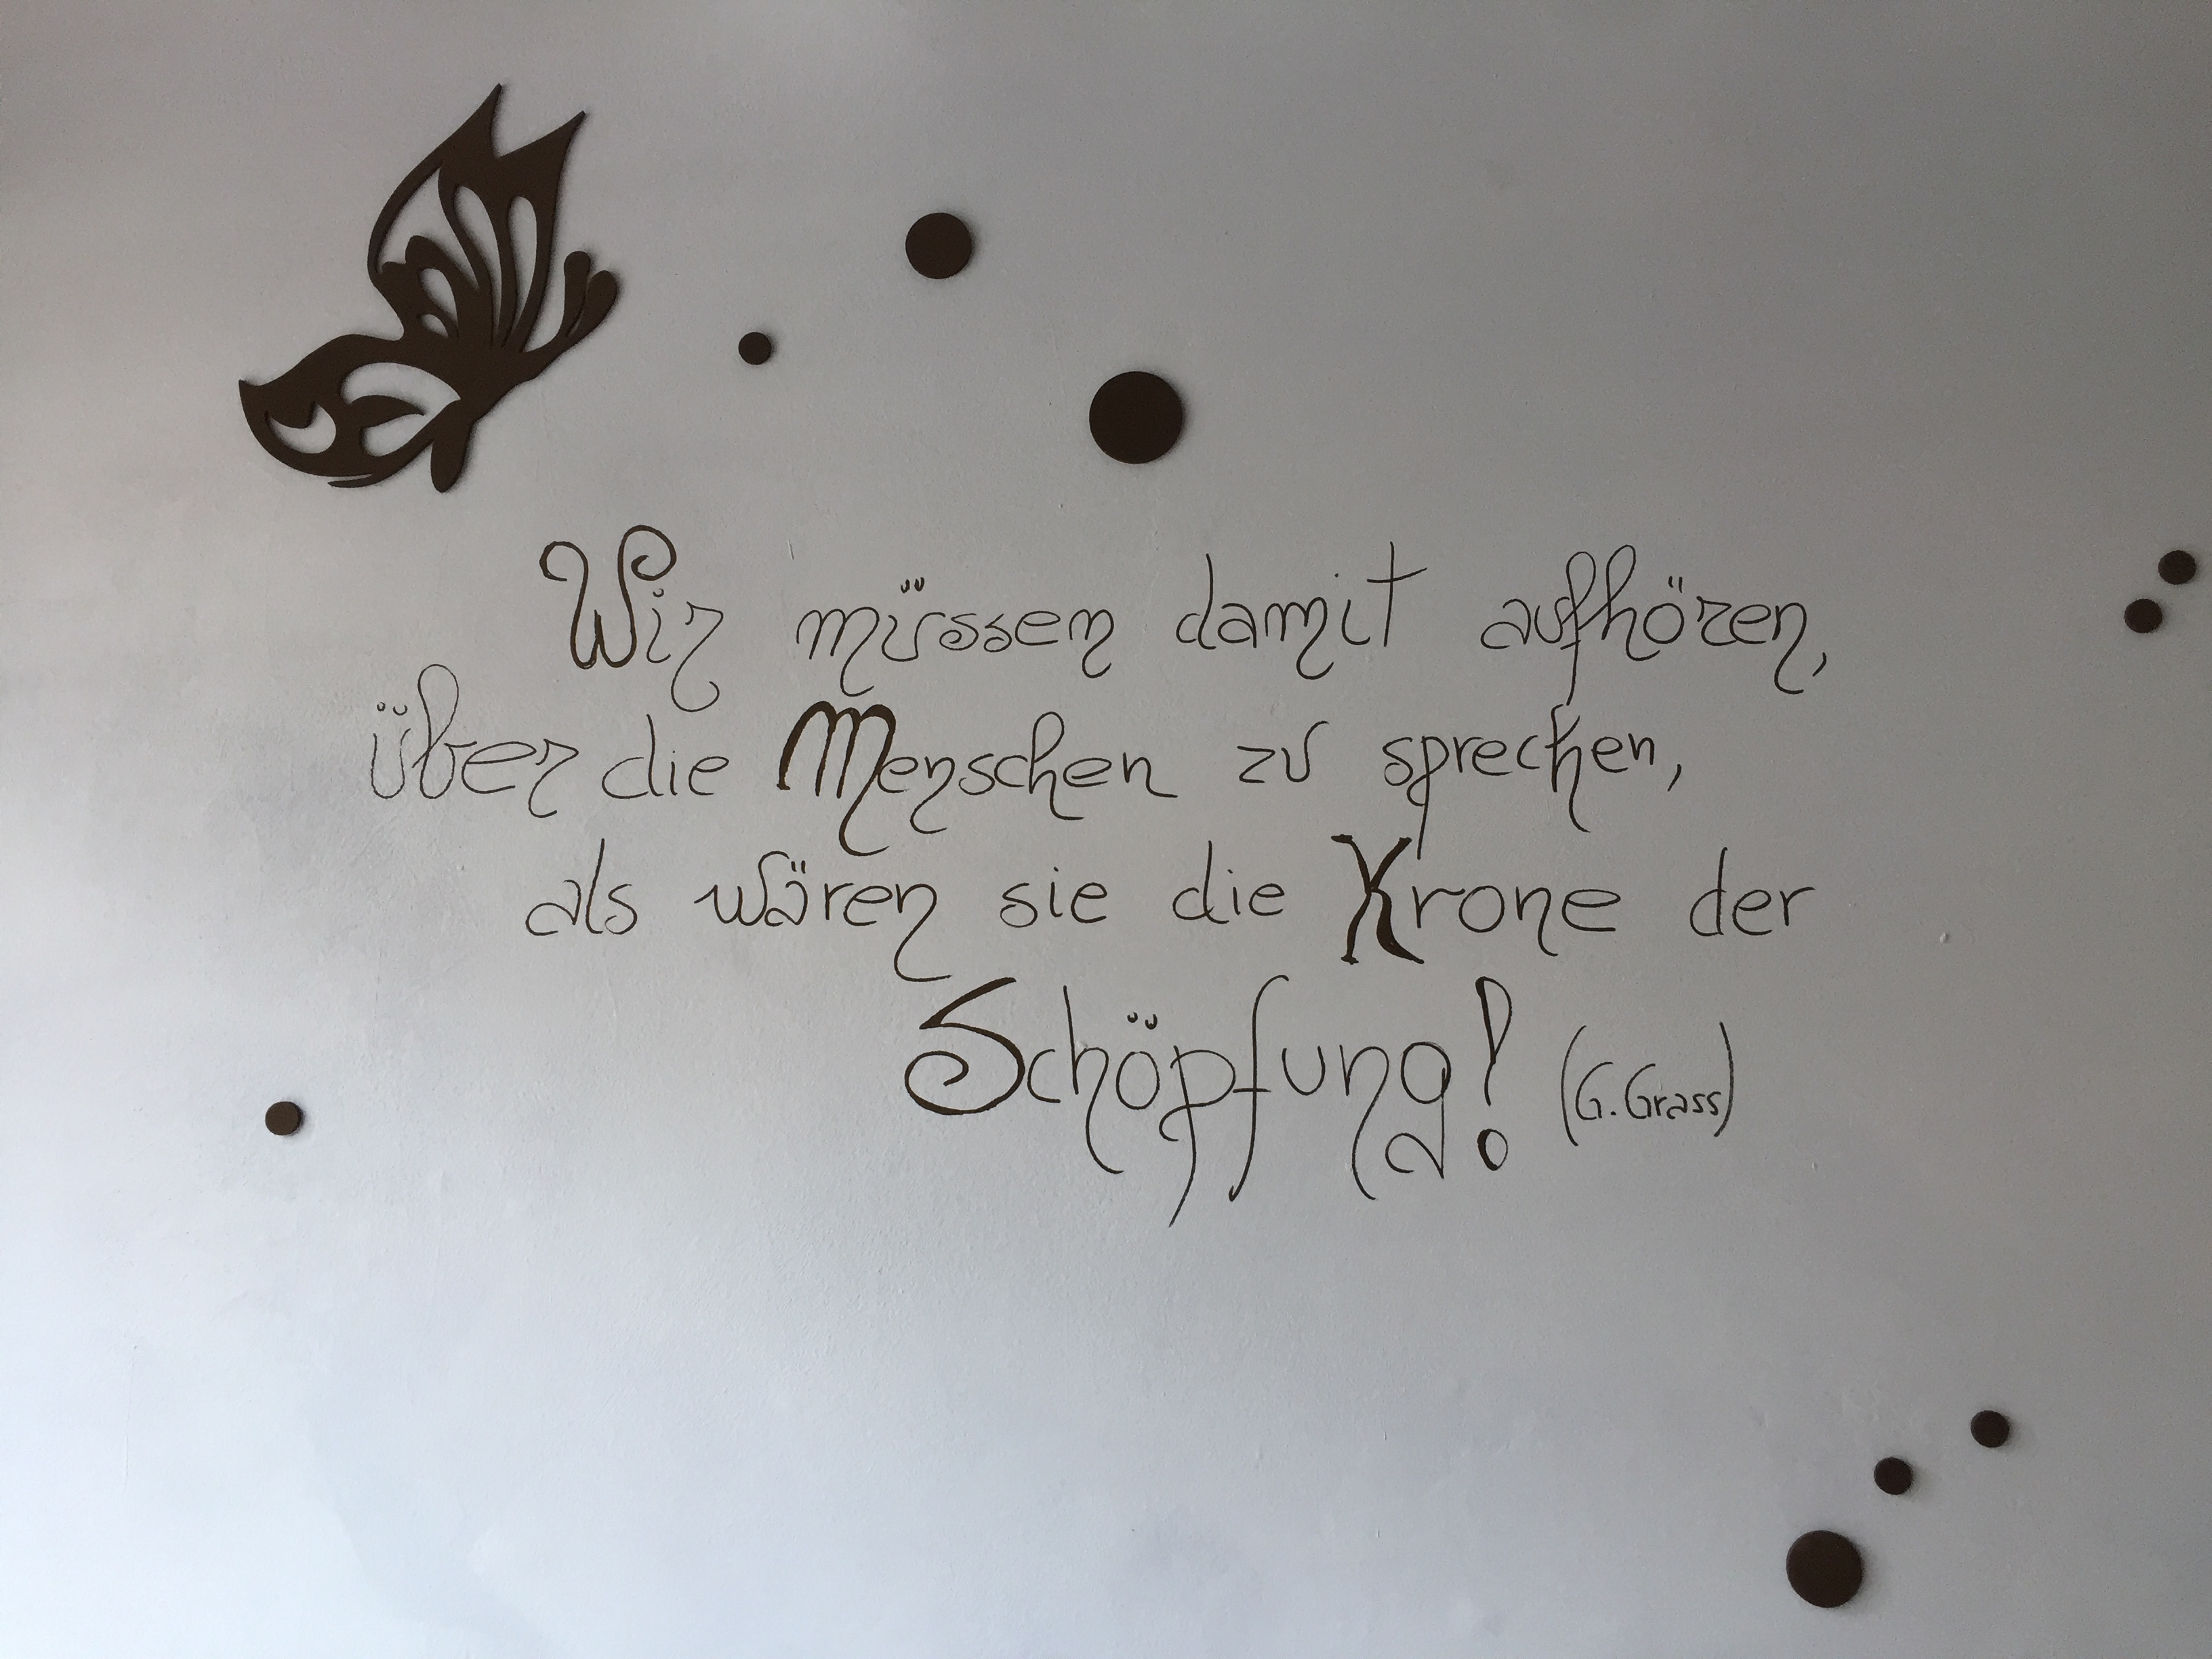 Wir müssen damit aufhören,
über die Menschen zu sprechen,
als wären sie die Krone der
Schöpfung! (G. Grass)